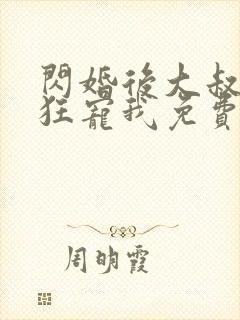 閃婚後大叔
狂寵我免費
周明霞